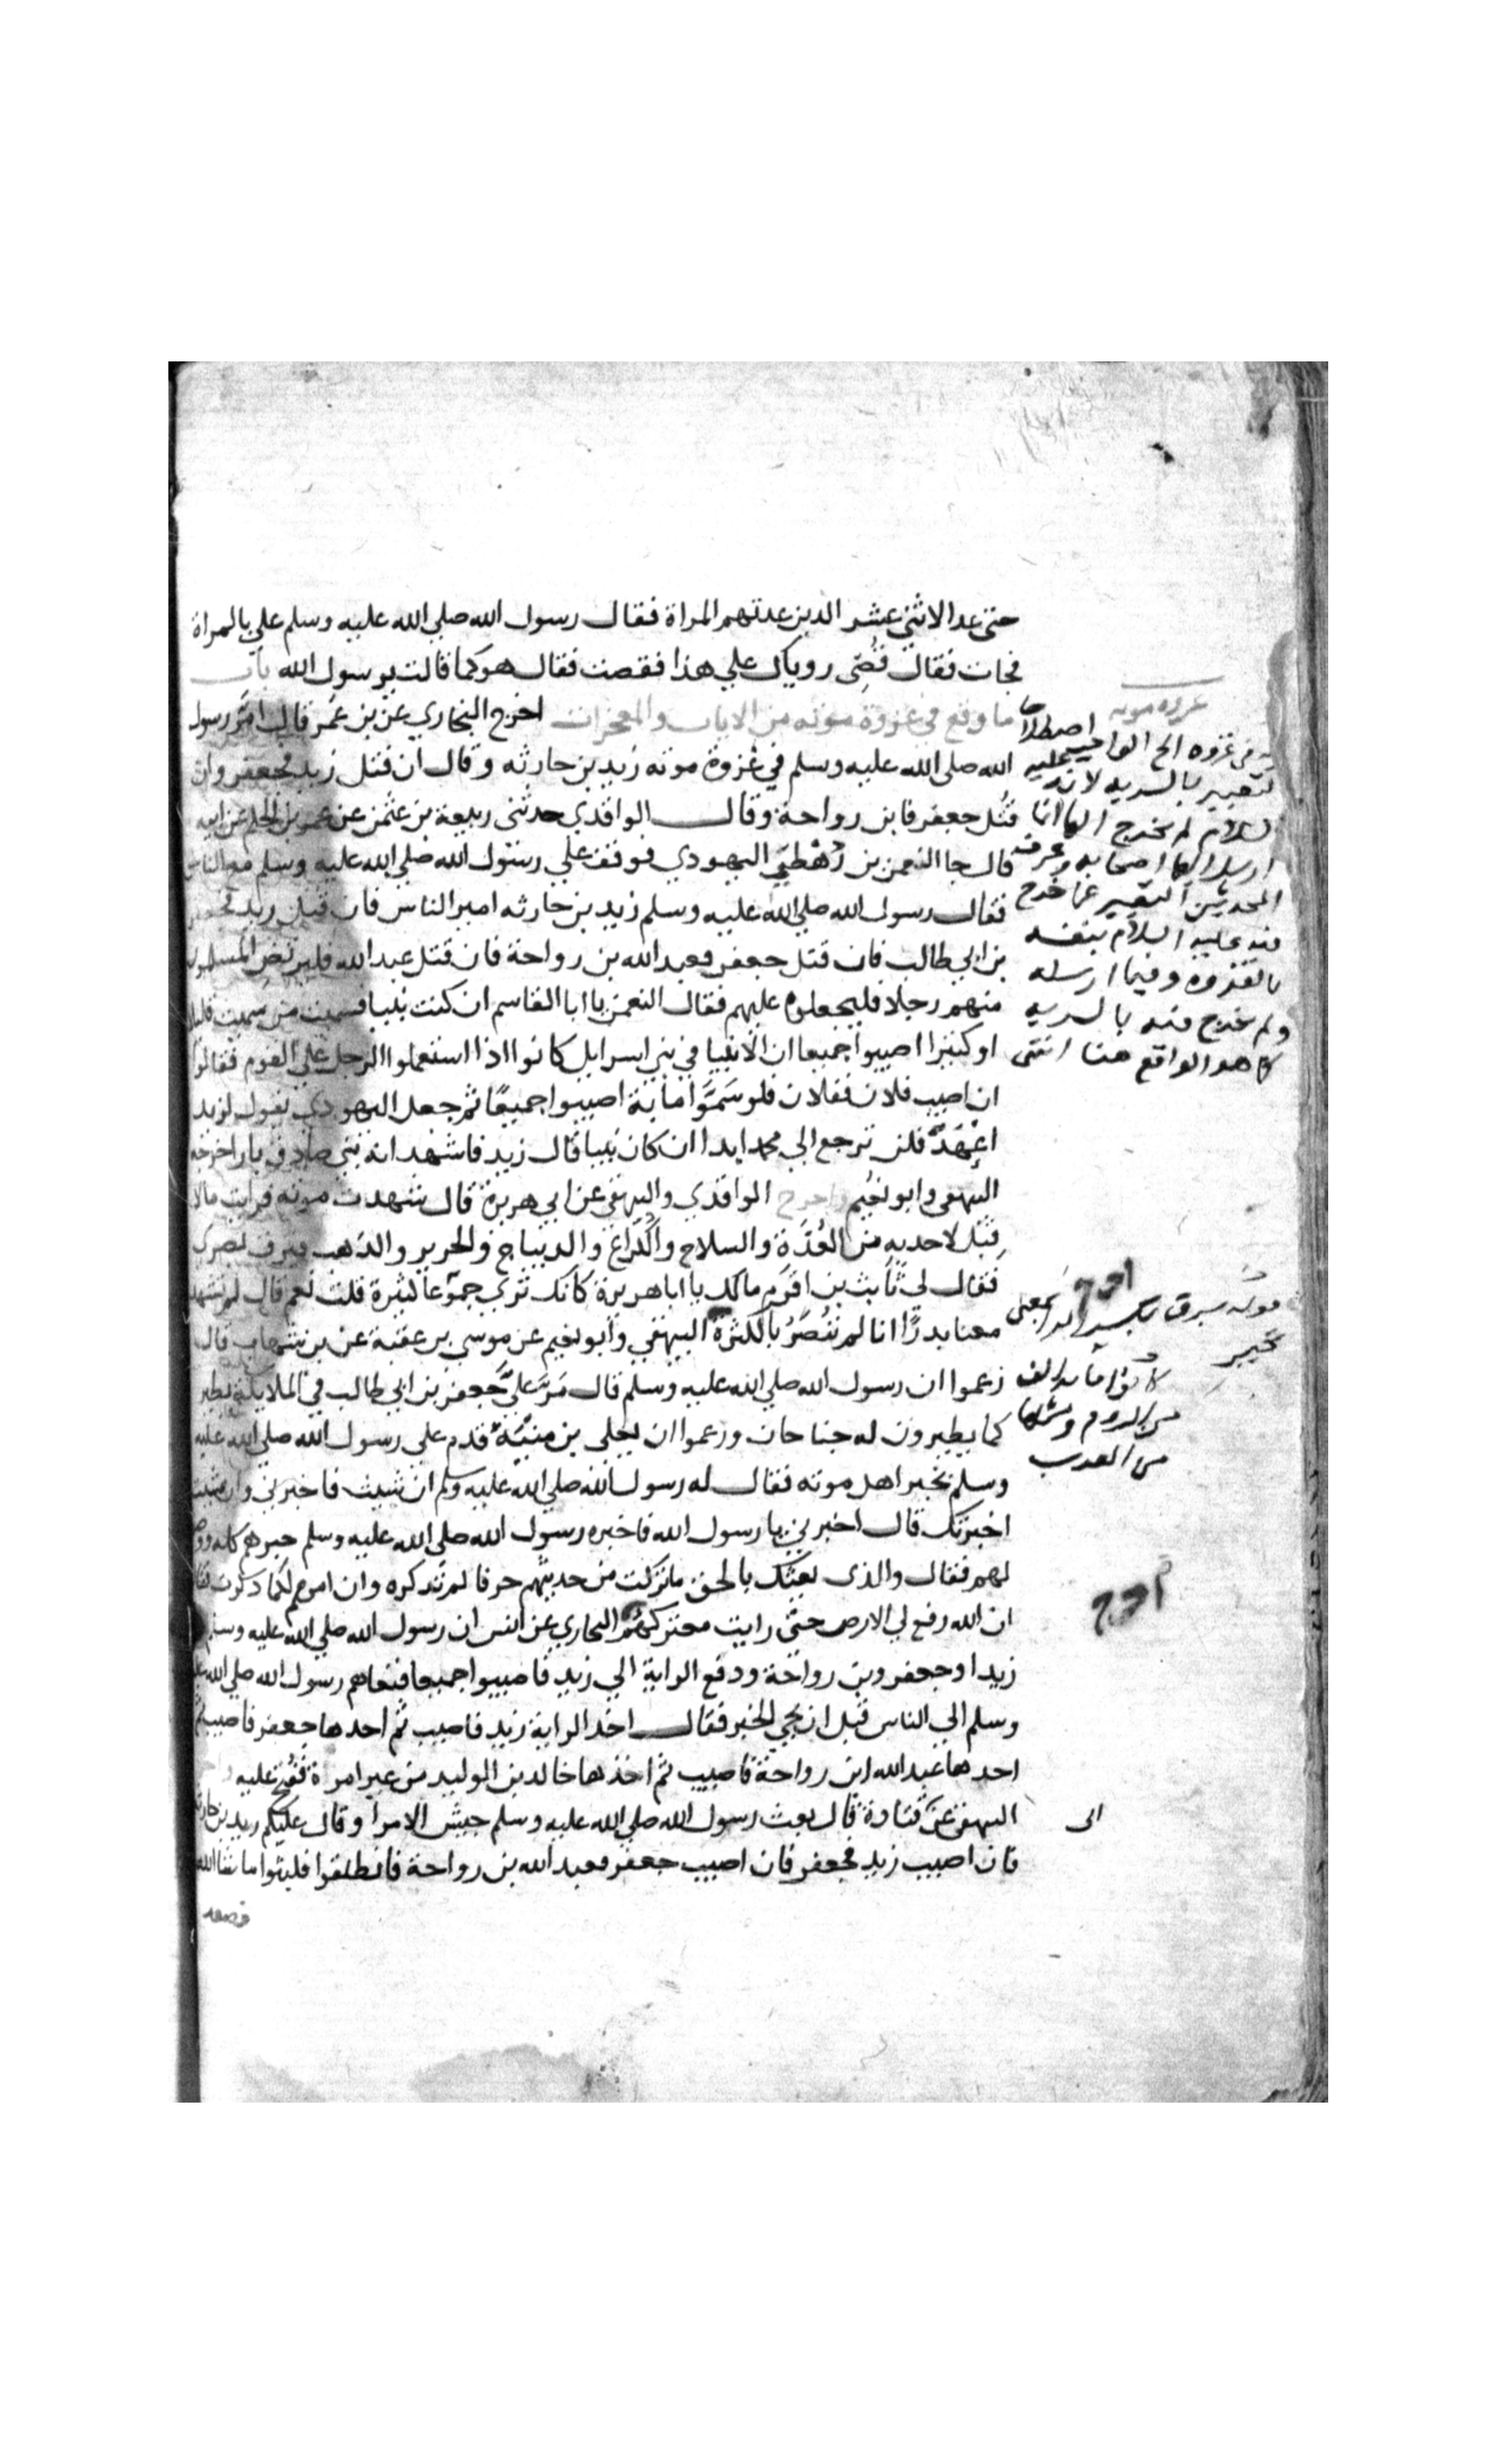 حتى عد الاثنى عشر الدين عدتهم المراة فقال رسول الله صلي الله عليه وسلم علي بالمراة
فجات فقال قُصِّى روياك علي هذا فقصت فقال هو كما قالت يرسول الله باب
ما وقع في غزوة موته من الايات والمعجزات اخرج البخاري عن بن عمر قال امّر رسول
الله صلى الله عليه وسلم في غزوة موته زيد بن حارثه وقال ان قتل زيد فجعفر وان
قُتل جعفر فابن رواحة وقال الواقدي حدثنى ربيعة بن عثمن عن عمر بن الحكم عن ابيه
قال جا النعمن بن رهطي اليهودي فوقف علي رسول الله صلي الله عليه وسلم مع الناس
فقال رسول الله صلي الله عليه وسلم زيد بن حارثه امير الناس فان قتل زيد فجعفر
بن ابي طالب فان قتل جعفر فعبد الله بن رواحة فان قتل عبد الله فليرتض المسلمون
منهم رجلا فليجعلوه عليهم فقال النعمن يا ابا القاسم ان كنت نبيا فسميت من سميت قليلا
او كثيرا اصيبوا جميعا ان الانبيا في بني اسرايل كانوا اذا استعملوا الرجل علي القوم فقالوا
ان اصيب فلان ففلان فلو سَمَّوا ماية اصيبوا جميعًا ثم جعل اليهودي يقول لزيد
اعهد فلن ترجع الي محمد ابدا ان كان نبيا قال زيد فاشهد انه نبي صادق بار اخرجه
البيهقى وابو نعيم واخرج الواقدي والبيهقى عن ابي هريرة قال شهدت موته فرايت مالا
قِبَل لاحد به من العُدَّةِ والسلاح والكُراع والديباج والحرير والذهب فبرق بصري
فقال لي ثابت بن اقرم مالك يا ابا هريرة كانك تري جموعا كثيرة قلت نعم قال لم تشهد
معنا بدرًا انا لم نُنصَرْ بالكثرة البيهقي وابو نعيم عن موسي بن عقبة عن بن شهاب قال
زعموا ان رسول الله صلي الله عليه وسلم قال مَر عليَّ جعفر بن ابي طالب في الملايكة يطير
كما يطيرون له جناحان وزعموا ان يعلى بن منبّه قدم علي رسول الله صلي الله عليه
وسلم بخبر اهل موته فقال له رسول الله صلي الله عليه وسلم ان شيت فاخبرني وان شيت
اخبرتك قال اخبرني يا رسول الله فاخبره رسول الله صلي الله عليه وسلم خبرهم كله
لهم فقال والذى بعثك بالحق ما تركت من حديثهم حرفا لم تذكره وان امرهم لكما ذكرت
ان الله رفع لي الارض حتى رايت معتركهم البخاري عن انس ان رسول الله صلي الله عليه وسلم
زيدا وجعفر وبن رواحة ودفع الراية الي زيد فاصيبوا جميعا فنعاهم رسول الله صلي الله
وسلم الي الناس قبل ان يجي الخبر فقال اخذ الراية زيد فاصيب ثم اخذها جعفر فاصيب ثم
اخذها عبد الله ابن رواحة فاصيب ثم اخذها خالد بن الوليد من غير امرة ففُتح عليه
البيهقى عن قتادة قال بعث رسول الله صلي الله عليه وسلم جيش الامرا وقال عليكم زيد بن حارثة
فان اصيب زيد فجعفر فان اصيب جعفر فعبد الله بن رواحة فانطلقوا فلبثوا ما شا الله
فصعد
غزوه موته
فى غزوه الخ الواجب اصطلاحا
التعبير بالسريه لانه عليه
السلام لم يخرج اليها انما
ارسل اليها اصحابه وعرف
المحدثين التعبير عما خرج
فيه عليه السلام بنفسه
بالغزوه وفيما ارسله
ولم يخرج فيه بالسريه
كما هو الواقع هنا انتهى
اخرج
قوله فبرق بكسر الراء بمعنى
تحير
كانوا مايه الف
من الروم ومثلها
من العرب
اخرج
الى